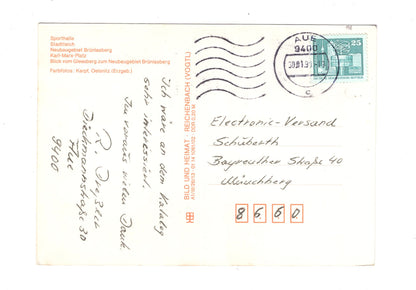 Sporthalle
Stadtteich
Neubaugebiet Brünlasberg
Karl-Marx-Platz
Blick vom Gleesberg zum Neubaugebiet Brünlasberg
Farbfotos: Karpf, Oelsnitz (Erzgeb.)
Ich wäre an dem Katalog
sehr interessiert.
Im voraus vielen Dank.
R. Dreßler
Dieselmannstraße 30
Aue
9400
BILD UND HEIMAT REICHENBACH (VOGTL)
AUE
9400
c
25
Electronic-Versand
Schuberth
Bayreuther Straße 40
Münchberg
8660